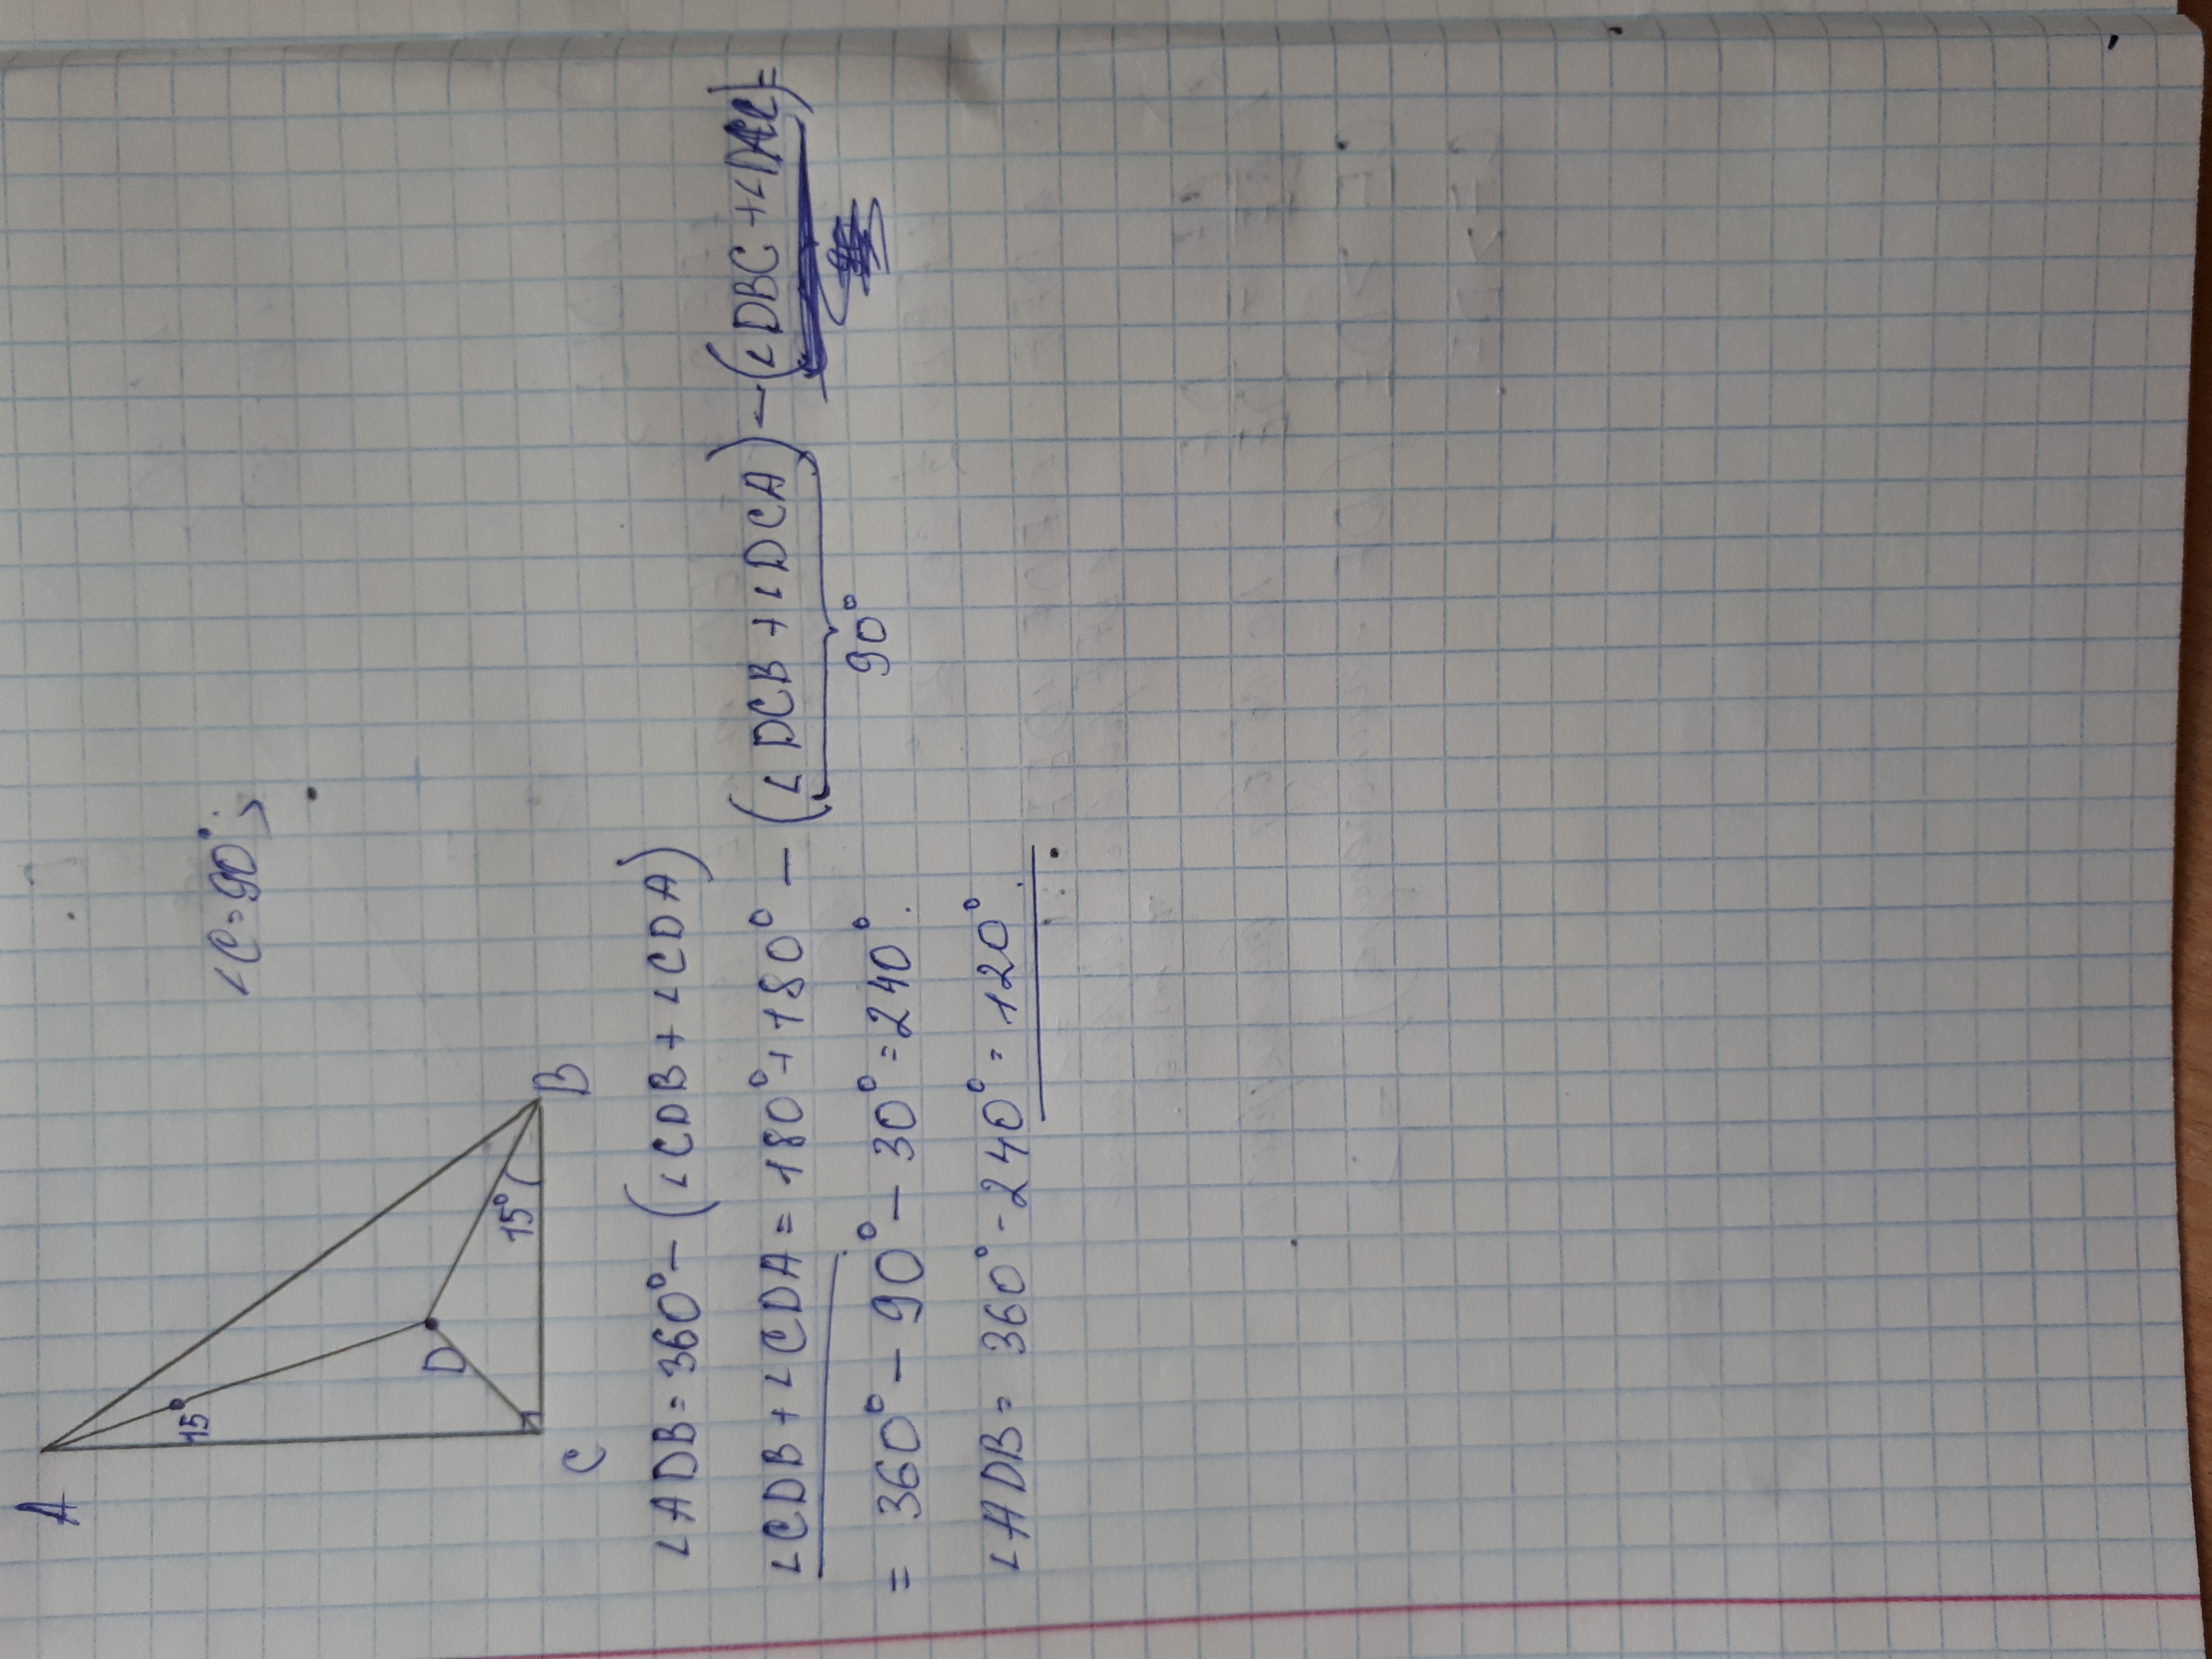 A
∠C=90°;
15
D
15°
C
B
∠ADB=360°-(∠CDB+∠CDA)
∠CDB+∠CDA=180°+180°-(∠DCB+∠DCA)-(∠DBC+∠DAC)=
90°
=360°-90°-30°=240°.
∠ADB=360°-240°=120°.